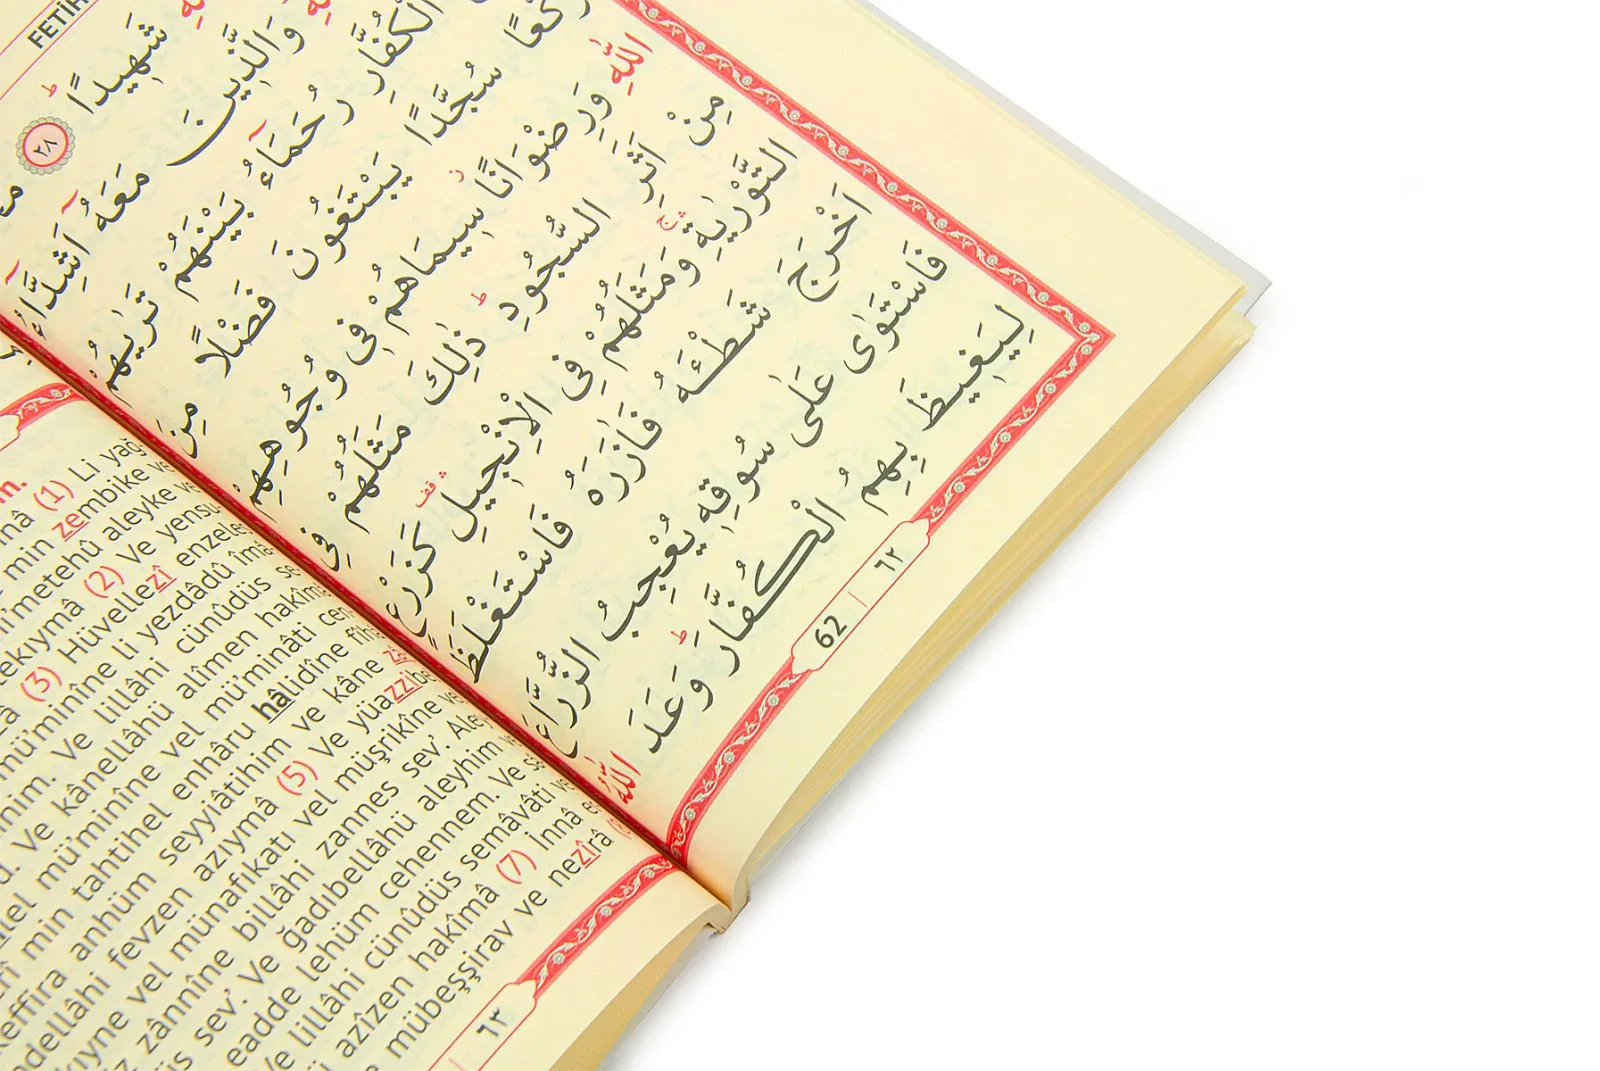 FETİH
شَهِيدًاۜ ٢٨
وَالَّذِينَ مَعَهُٓ اَشِدَّٓاءُ
الْكُفَّارِ رُحَمَٓاءُ بَيْنَهُمْ تَرٰيهُمْ
رُكَّعًا سُجَّدًا يَبْتَغُونَ فَضْلًا مِنَ
اللّٰهِ وَرِضْوَانًاۘ سِيمَاهُمْ فِى وُجُوهِهِمْ
مِنْ اَثَرِ السُّجُودِۜ ذٰلِكَ مَثَلُهُمْ فِى
التَّوْرٰيةِۚ وَمَثَلُهُمْ فِى الْاِنْجِيلِ كَزَرْعٍ
اَخْرَجَ شَطْـَٔهُ فَاٰزَرَهُ فَاسْتَغْلَظَ
فَاسْتَوٰى عَلٰى سُوقِهِ يُعْجِبُ الزُّرَّاعَ
لِيَغِيظَ بِهِمُ الْكُفَّارَۜ وَعَدَ اللّٰهُ
62 | ٦٢
(1) Li yağ
min zembike ve
ni'metehû aleyke ve
(2) Ve yensu
(3) Hüvellezî enzele
mü'minîne li yezdâdû îmâ
Ve lillâhi cünûdüs se
Ve kânellâhü alîmen hakîmâ
mü'minîne vel mü'minâti cen
min tahtihel enhâru hâlidîne fîhâ
keffira anhüm seyyiâtihim ve kâne
fevzen azıymâ (5) Ve yüazzibe
vel münafıkati vel müşrikîne ve
zânnîne billâhi zannes sev'. Aley
sev'. Ve ğadıbellâhü aleyhim ve
eadde lehüm cehennem. Ve
Ve lillâhi cünûdüs semâvâti ve
azîzen hakîmâ (7) İnnâ
mübeşşirav ve nezîrâ
٦٣